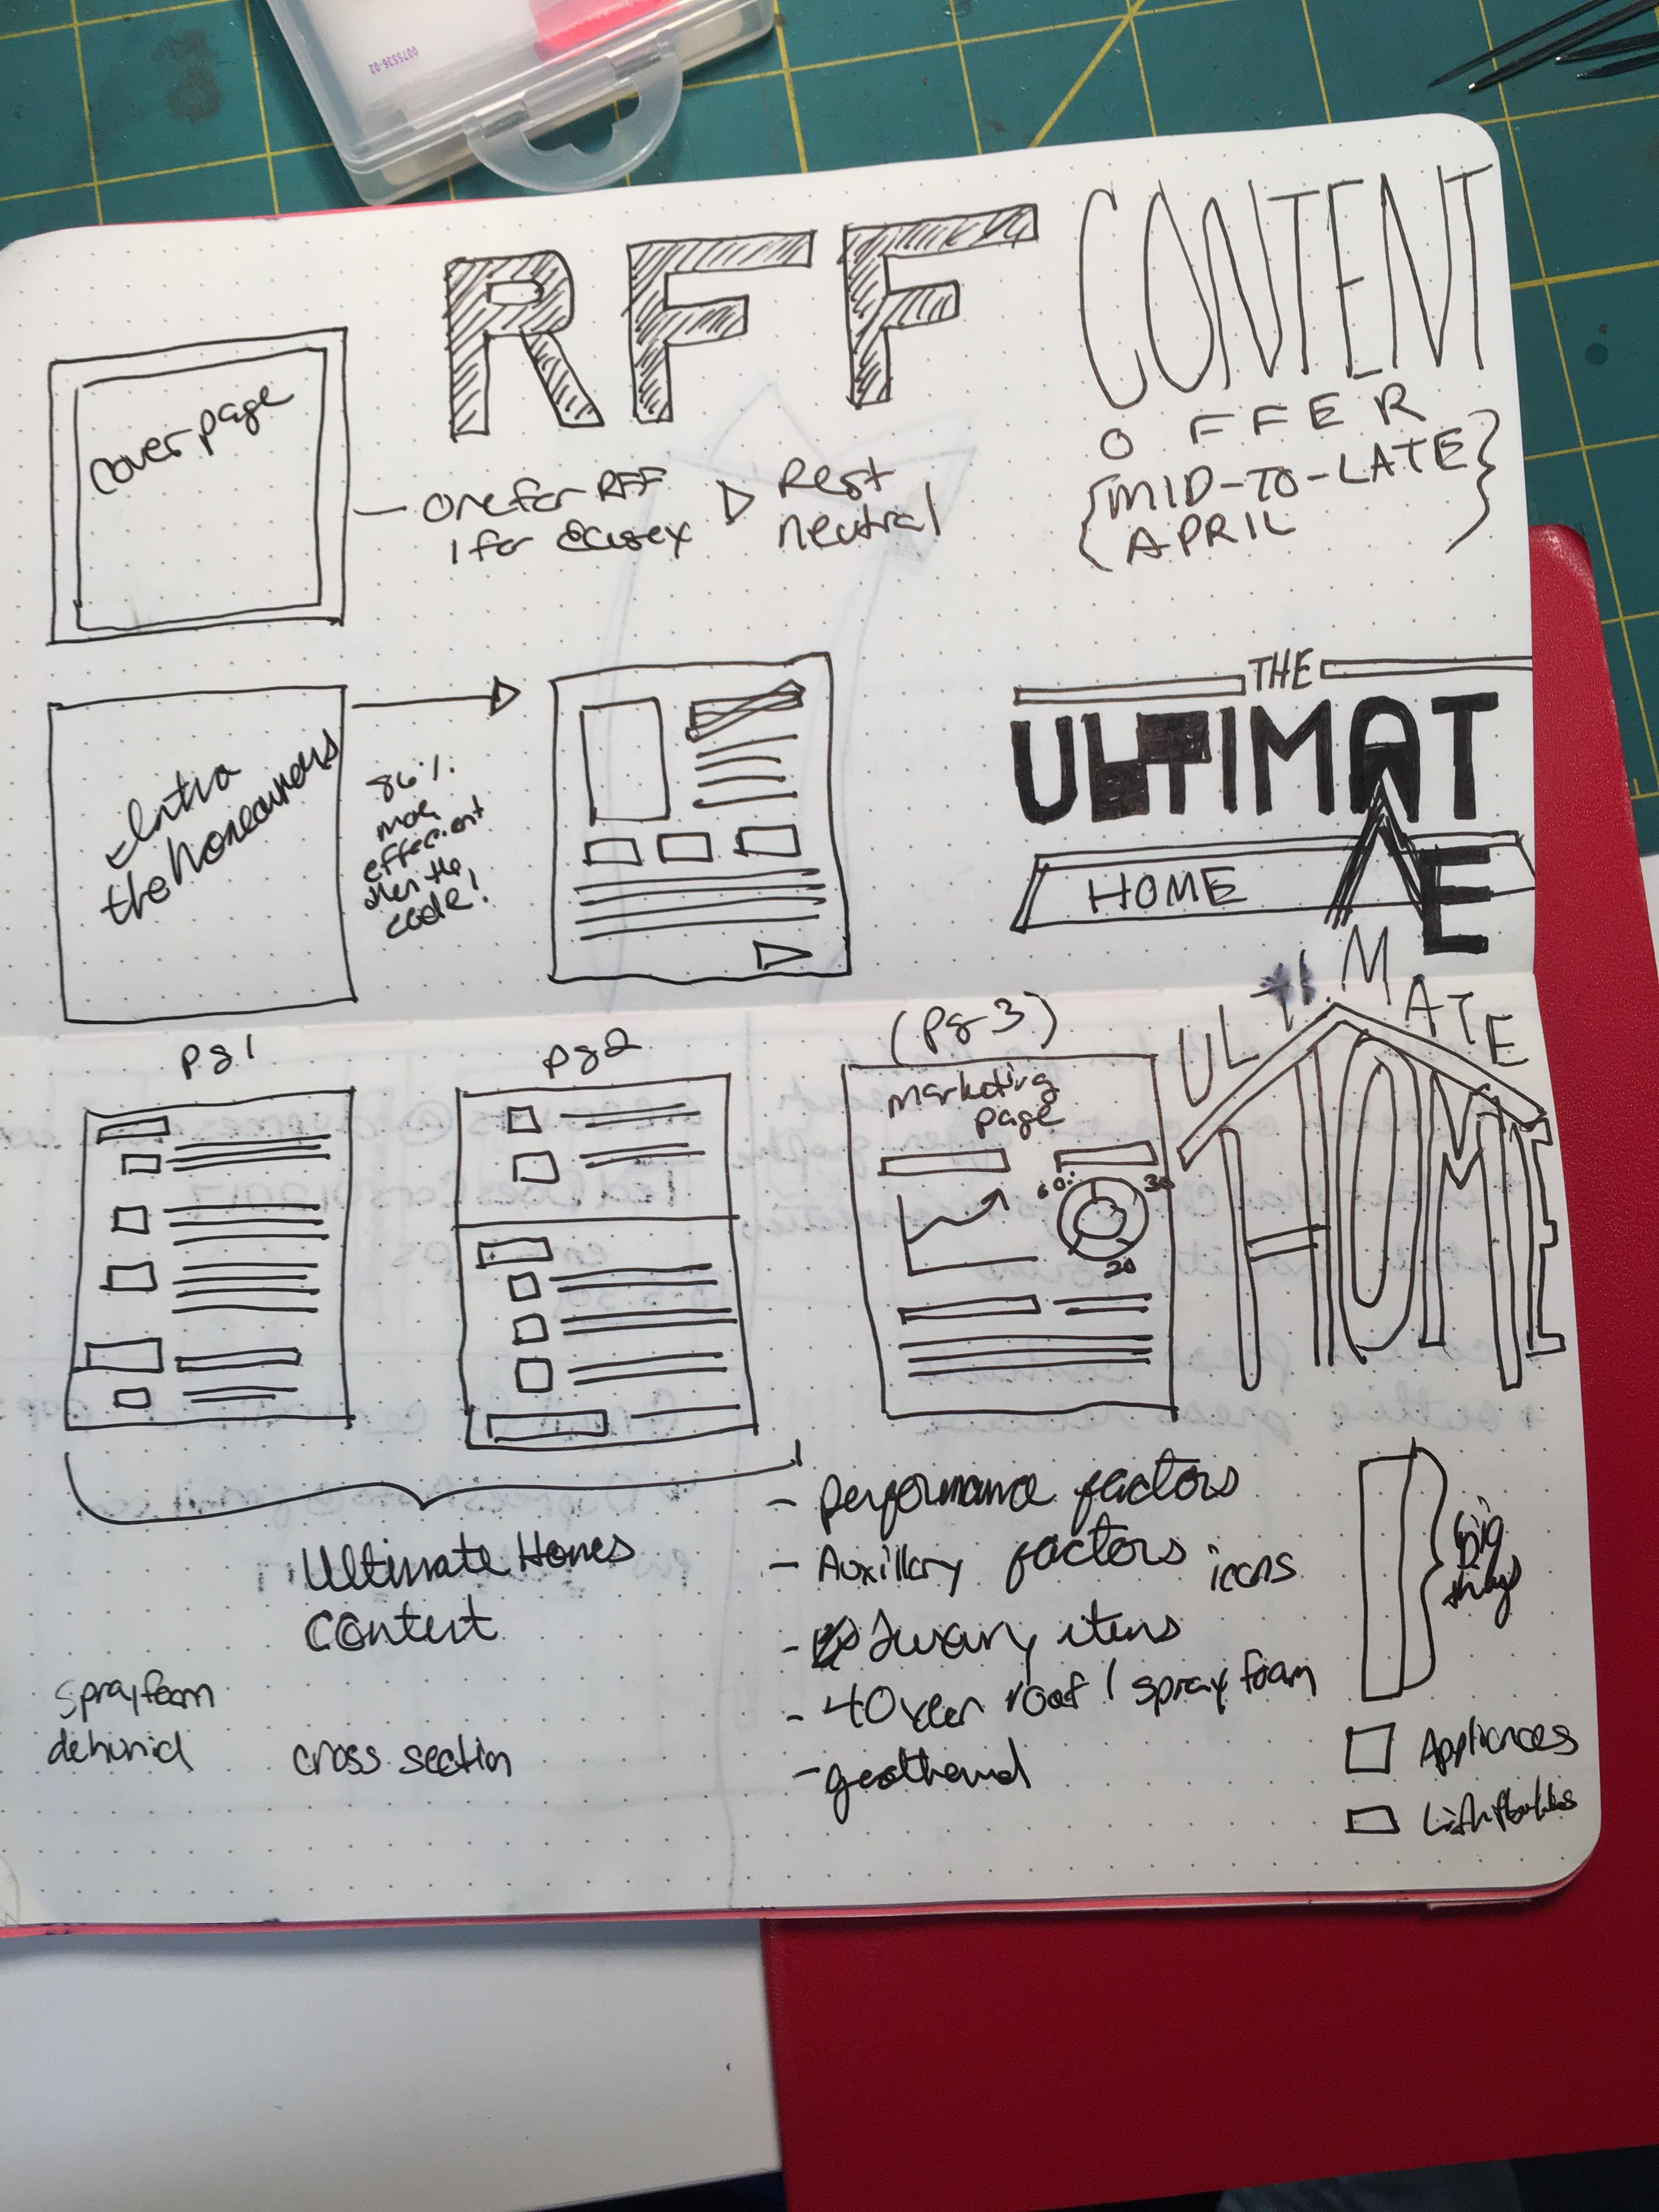 0075536-02
RFF
CONTENT
OFFER
{MID-TO-LATE
APRIL}
cover page
— one for RFF
1 for
Rest
neutral
Intro
the homeowners
86%
more
efficient
then the
code!
THE
ULTIMATE
HOME
ULTIMATE
HOME
pg 1
pg 2
(pg 3)
marketing
page
60
30
20
Ultimate Homes
Content
sprayfoam
dehumid
cross section
- performance factors
- Auxillary factors icons
- Luxury items
- 40 year roof / spray foam
- geothermal
big
things
Appliances
Lightbulbs